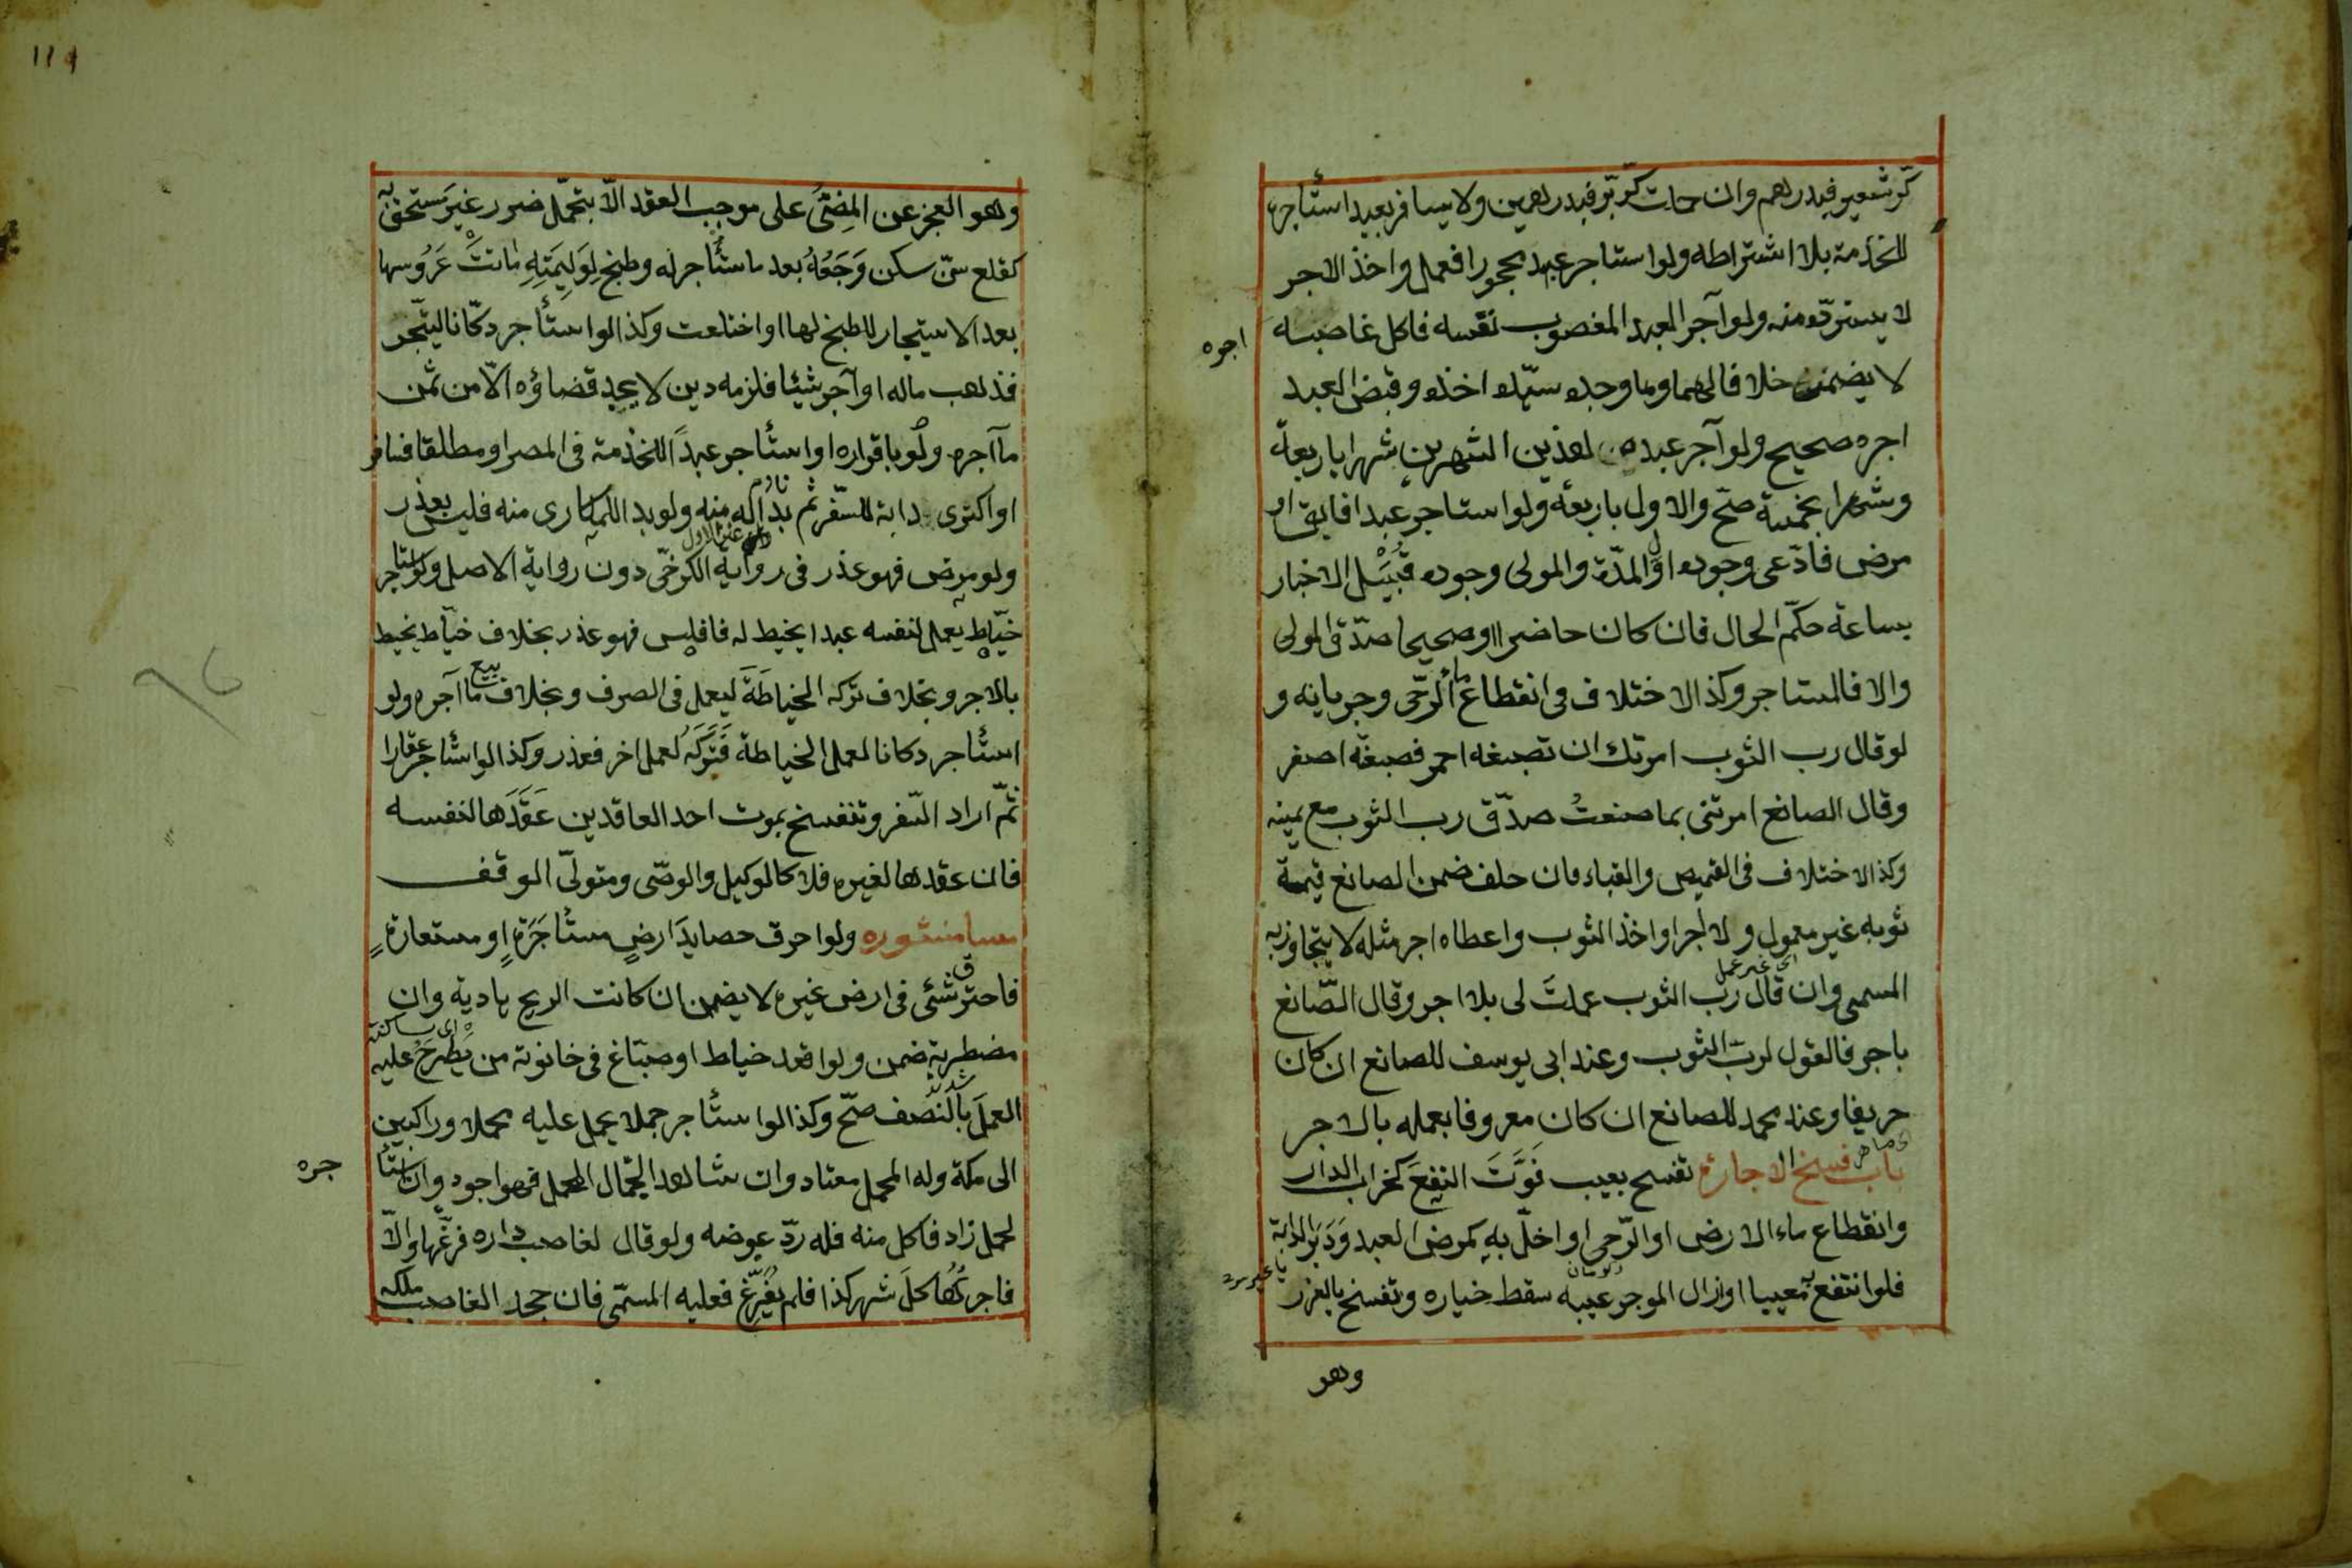 كرّ شعير فبدرهم وان حملت كرّ برّ فبدرهمين ولا يسافر بعبد استأجره
للخدمة بلا اشتراطه ولو استاجر عبد محجورا فعمل واخذ الاجر
لا يستردّه منه ولو آجر العبد المغصوب نفسه فاكل غاصبه
اجره
لا يضمنه خلافا لهما وما وجده سيّده اخذه وقبض العبد
اجره صحيح ولو آجر عبده هذين الشهرين شهرا باربعة
وشهرا بخمسة صحّ والاول باربعة ولو استاجر عبدا فابق او
مرض فادّعى وجوده اوّل المدّة والمولى وجوده قُبَيْل الاخبار
بساعة حكّم الحال فان كان حاضرا او صحيحا صدّق المولى
والا فالمستاجر وكذا الاختلاف فى انقطاع ماء الرّحى وجريانه و
لو قال رب الثوب امرتك ان تصبغه احمر فصبغه اصفر
وقال الصانع امرتنى بما صنعتُ صدّق رب الثوب مع يمينه
وكذا الاختلاف فى القميص والقباء فان حلف ضمن الصانع قيمة
ثوبه غير معمول ولا اجر او اخذ الثوب واعطاه اجر مثله لا يتجاوز به
المسمى وان قال ربّ الثوب عملتَ لى بلا اجر وقال الصّانع
باجر فالقول لربّ الثوب وعند ابى يوسف للصانع ان كان
حريفا وعند محمد للصانع ان كان معروفا بعمله بالاجر
باب فسخ الاجارة تفسح بعيب فَوَّتَ النفعَ كخراب الدار
وانقطاع ماء الارض او الرّحى او اخلّ به كمرض العبد وَدَبَر الدابة
فلو انتفع به معيبا او ازال الموجر عيبه سقط خياره وتفسخ بالعذر
وهو
١١٩
وهو العجز عن المضىّ على موجب العقد الّا بتحمّل ضرر غير مستحق به
كقلع سنّ سكن وَجَعُهُ بعد ما استأجر له وطبخ لِوَلِيمَتِهِ ماتَتْ عَرُوسها
بعد الاستيجار للطبخ لها او اختلعت وكذا لو استأجر دكّانا ليتّجر
فذهب ماله او آجر شيئا فلزمه دين لا يجد قضاؤه الّا من ثمن
ما آجره ولو باقراره او استأجر عبدًا للخدمة فى المصر او مطلقا فسافر
او اكترى دابة للسّفر ثم بدا له منه ولو بدا للمكارى منه فليس بعذر
ولو مرض فهو عذر فى رواية الكرخىّ دون رواية الاصل ولو استاجر
خيّاط يعمل لنفسه عبدا يخيط له فافلس فهو عذر بخلاف خيّاط يخيط
بالاجر وبخلاف تركه الخياطَةَ ليعمل فى الصرف وبخلاف بيع ما آجره ولو
استأجر دكانا لعمل الخياطة فَتَرَكَهُ لعمل اخر فعذر وكذا لو استأجر عقارا
ثمّ اراد السّفر وتنفسخ بموت احد العاقدين عَقَدَها لنفسه
فان عقدها لغيره فلا كالوكيل والوصّى ومتولىّ الوقف
مسا منثوره ولو احرق حصايدَ ارضٍ مستأجَرَةٍ او مستعارةٍ
فاحترق شئى فى ارض غيره لا يضمن ان كانت الريح هادية وان
اى ساكنة
مضطربة ضمن ولو اقعد خياط او صبّاغ فى حانوته من يَطْرَحُ عليه
العملَ بالنّصف صحّ وكذا لو استأجر جملا يحمل عليه محملا وراكبين
الى مكّة وله المحمل معتاد وان شاهد الجمّال المحمل فهو اجود وان استأ
جره
لحمل زاد فاكل منه فله ردّ عوضه ولو قال لغاصب داره فرّغها والّا
فاجرتُها كلَّ شهر كذا فلم يُفَرِّغ فعليه المسمّى فان جحد الغاصب ملكه